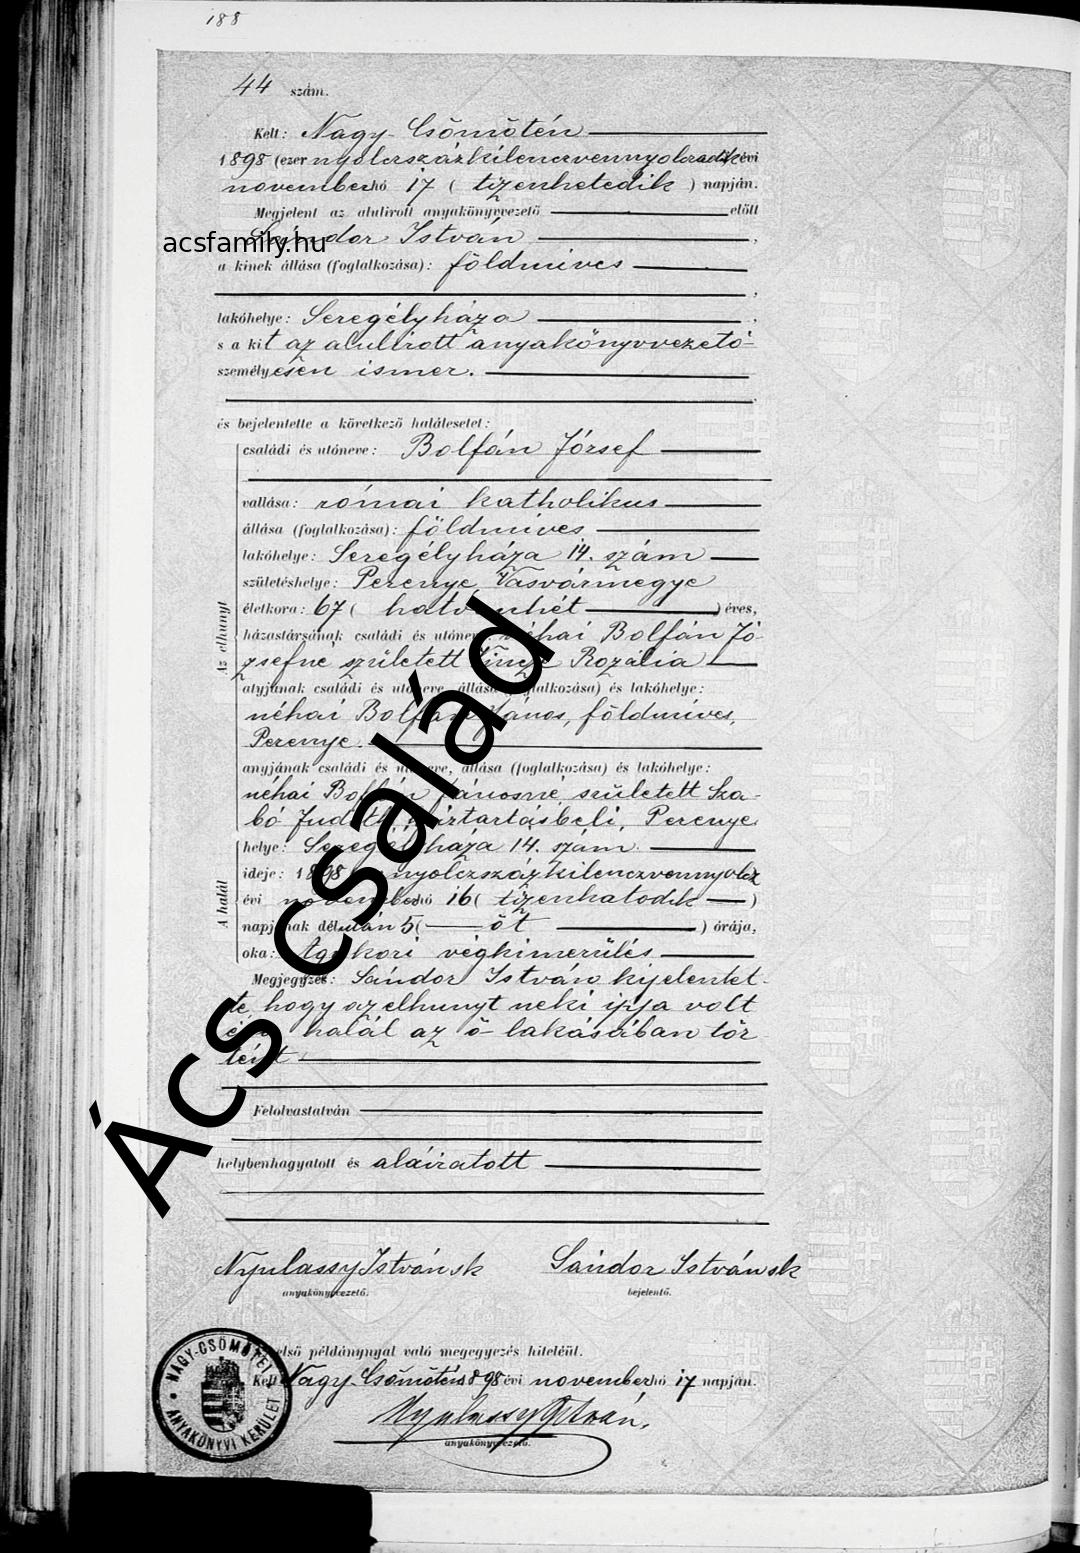 188
44 szám.
Kelt: Nagy-Csömötén
1898 (ezer nyolcszázkilencvennyolcadik évi
november hó 17 (tizenhetedik) napján.
Megjelent az alulirott anyakönyvvezető előtt
Sándor István,
acsfamily.hu
a kinek állása (foglalkozása): földmives
,
lakóhelye: Seregélyháza,
s a kit az alulirott anyakönyvvezető
személyesen ismer.
és bejelentette a következő halálesetet:
Az elhunyt
családi és utóneve: Bolfán József
vallása: római katholikus
állása (foglalkozása): földmives
lakóhelye: Seregélyháza 14. szám
születéshelye: Perenye, Vasvármegye
életkora: 67 (hatvanhét) éves,
házastársának családi és utóneve: néhai Bolfán Jó-
zsefné született Rozália
atyjának családi és utóneve, állása (foglalkozása) és lakóhelye:
néhai Bolfán János, földmives,
Perenye.
anyjának családi és utóneve, állása (foglalkozása) és lakóhelye:
néhai Bolfán Jánosné született Sza-
bó Judith, háztartásbeli, Perenye
A halál
helye: Seregélyháza 14. szám
ideje: 1898 nyolczszázkilenczvennyolcz
évi november hó 16 (tizenhatodik)
napjának délután 5 (öt) órája,
oka: Aggkori végkimerülés
Megjegyzés: Sándor István kijelentet-
te, hogy az elhunyt neki ipja volt
és a halál az ő lakásában tör-
tént
Felolvastatván
helybenhagyatott és aláiratott
Nyulassy István sk
anyakönyvvezető.
Sándor István sk
bejelentő.
első példánynyal való megegyezés hiteléül.
Kelt Nagy-Csömötén 898 évi november hó 17 napján.
Nyulassy István.
anyakönyvvezető.
NAGY-CSÖMÖTEI
ANYAKÖNYVI KERÜLET
Ács család